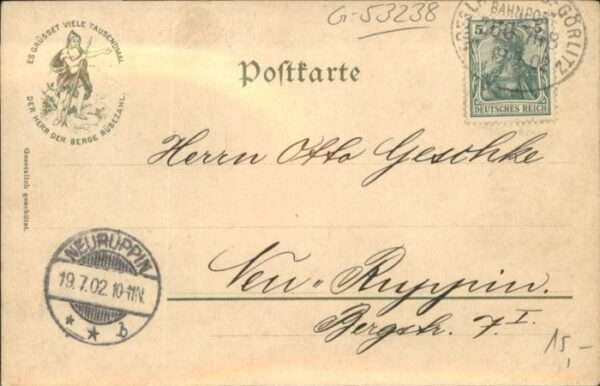 G-53238
ES GRÜSSET VIELE TAUSENDMAL
DER HERR DER BERGE RÜBEZAHL.
BAHNPOST
GÖRLITZ
5
DEUTSCHES REICH
Postkarte
Gesetzlich geschützt.
Herrn Otto Geschke
NEURUPPIN
19.7.02.10-11N.
* * b
Neu-Ruppin.
Bergstr. 7 I.
15,-